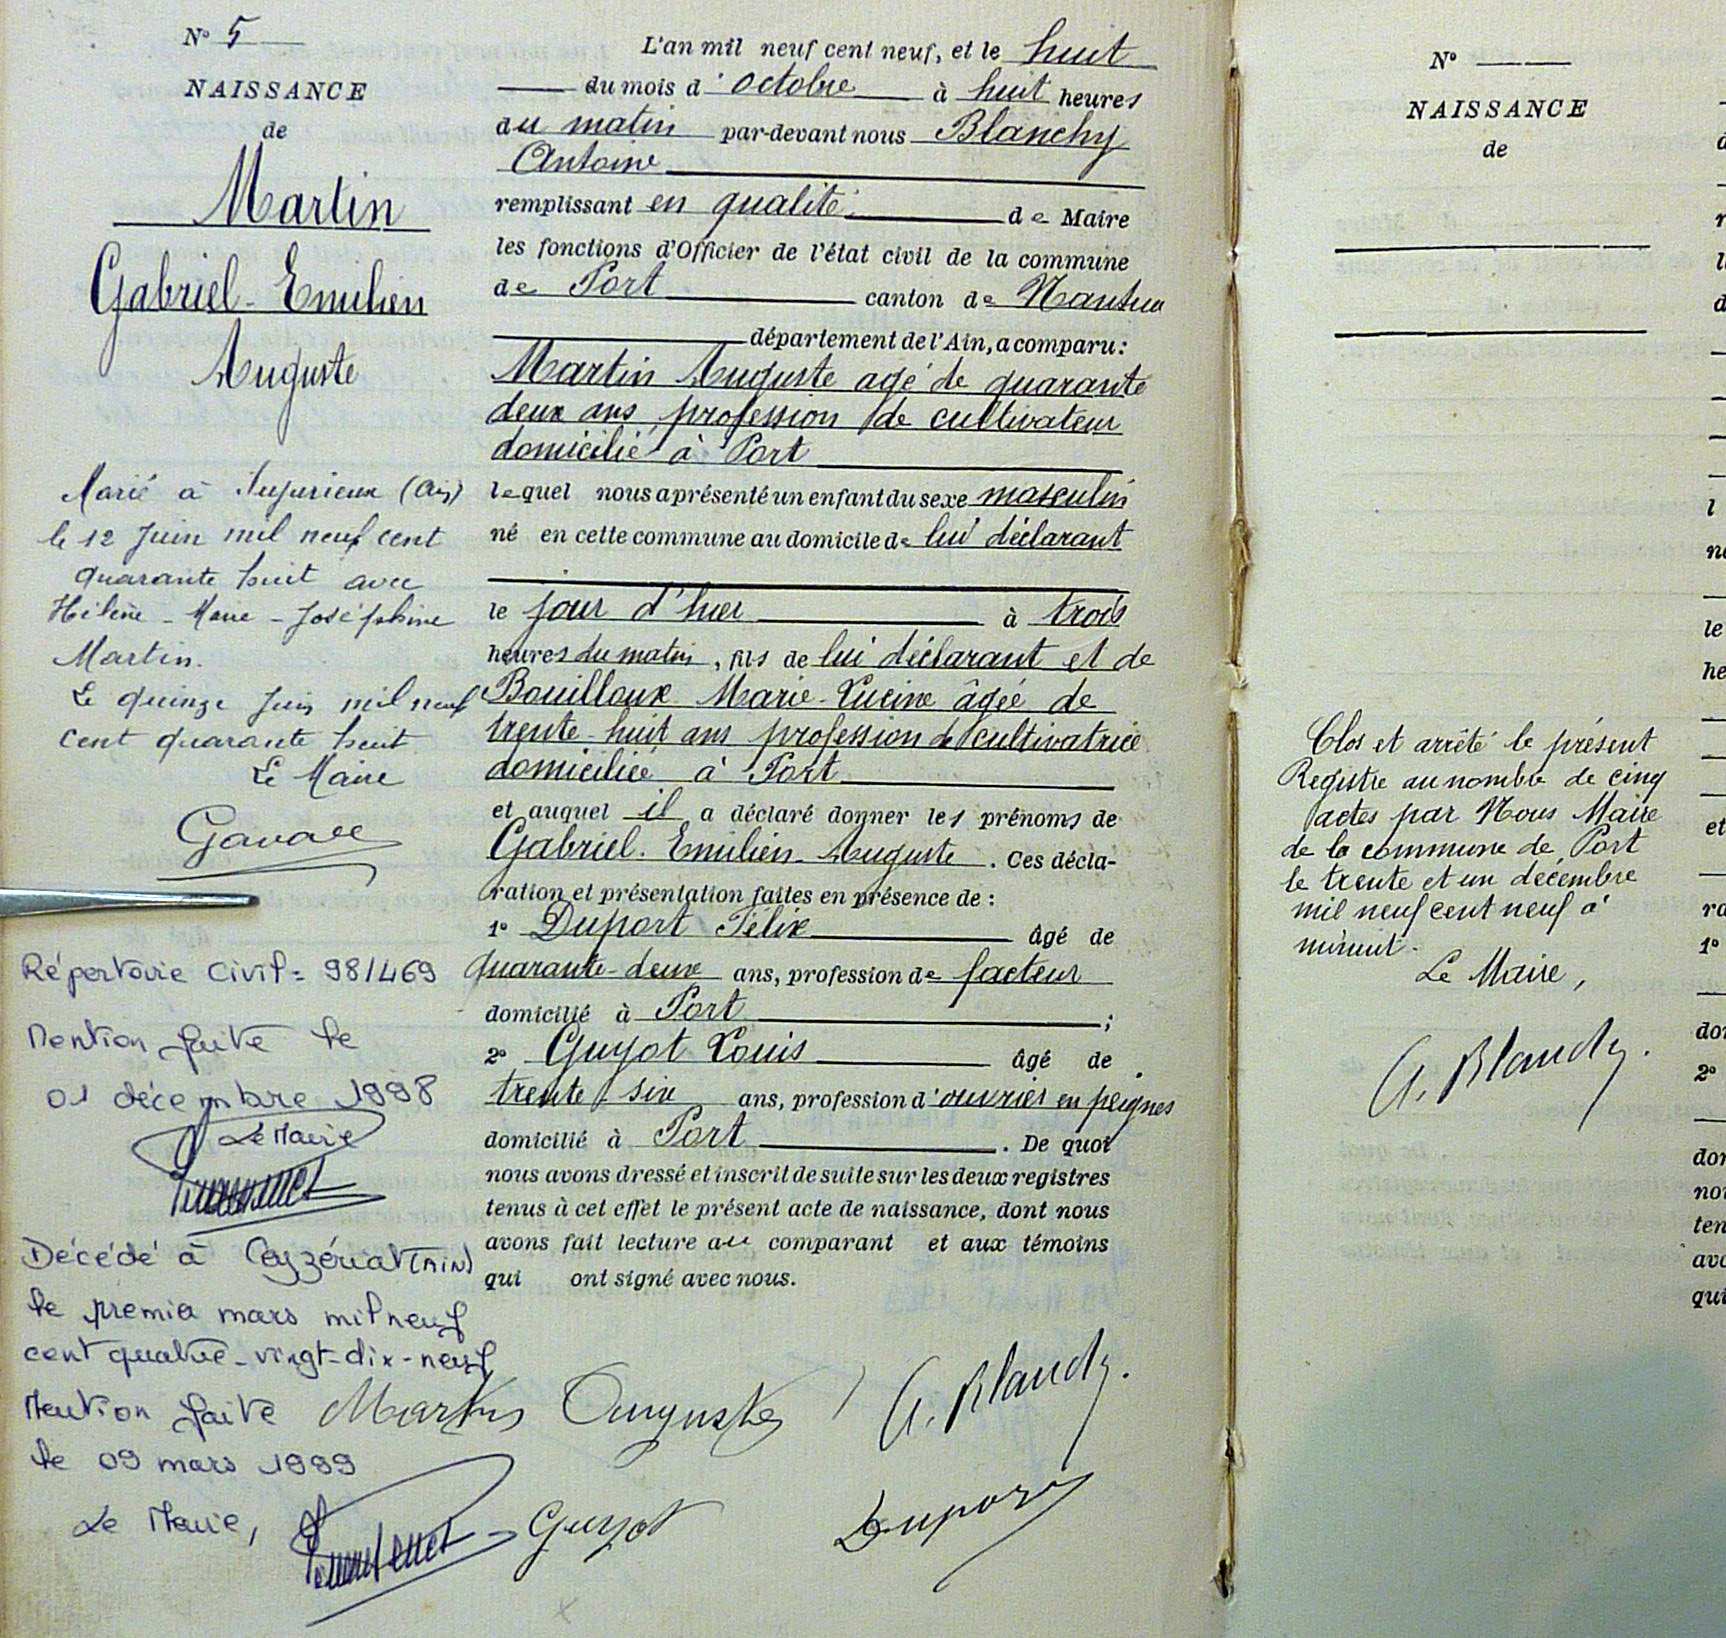 N° 5
NAISSANCE
de
Martin
Gabriel-Emilien
Auguste
Marié à Jujurieux (Ain)
le 12 Juin mil neuf cent
quarante huit avec
Hélène-Marie-Joséphine
Martin.
Le quinze Juin mil neuf
cent quarante huit
Le Maire
Répertoire Civil = 98/469
Mention faite le
01 décembre 1998
Le Maire
Décédé à Ceyzériat (AIN)
le premier mars mil neuf
cent quatre-vingt-dix-neuf
Mention faite
le 09 mars 1999
Le Maire,
L'an mil neuf cent neuf, et le huit
du mois d'octobre à huit heures
du matin par-devant nous Blanchy
Antoine
remplissant en qualité de Maire
les fonctions d'Officier de l'état civil de la commune
de Port canton de Nantua
département de l'Ain, a comparu:
Martin Auguste agé de quarante
deux ans, profession de cultivateur
domicilié à Port
lequel nous a présenté un enfant du sexe masculin
né en cette commune au domicile de lui déclarant
le jour d'hier à trois
heures du matin, fils de lui déclarant et de
Bouilloux Marie-Lucine âgée de
trente-huit ans profession de cultivatrice
domiciliée à Port
et auquel il a déclaré donner les prénoms de
Gabriel-Emilien-Auguste. Ces décla-
ration et présentation faites en présence de :
1° Duport Félix âgé de
quarante-deux ans, profession de facteur
domicilié à Port ;
2° Guyot Louis âgé de
trente six ans, profession d'ouvrier en peignes
domicilié à Port. De quoi
nous avons dressé et inscrit de suite sur les deux registres
tenus à cet effet le présent acte de naissance, dont nous
avons fait lecture au comparant et aux témoins
qui ont signé avec nous.
Martin Auguste A. Blanchy.
Guyot Duport
N°
NAISSANCE
de
Clos et arrêté le présent
Registre au nombre de cinq
actes par Nous Maire
de la commune de Port
le trente et un décembre
mil neuf cent neuf à
minuit.
Le Maire,
A. Blanchy.